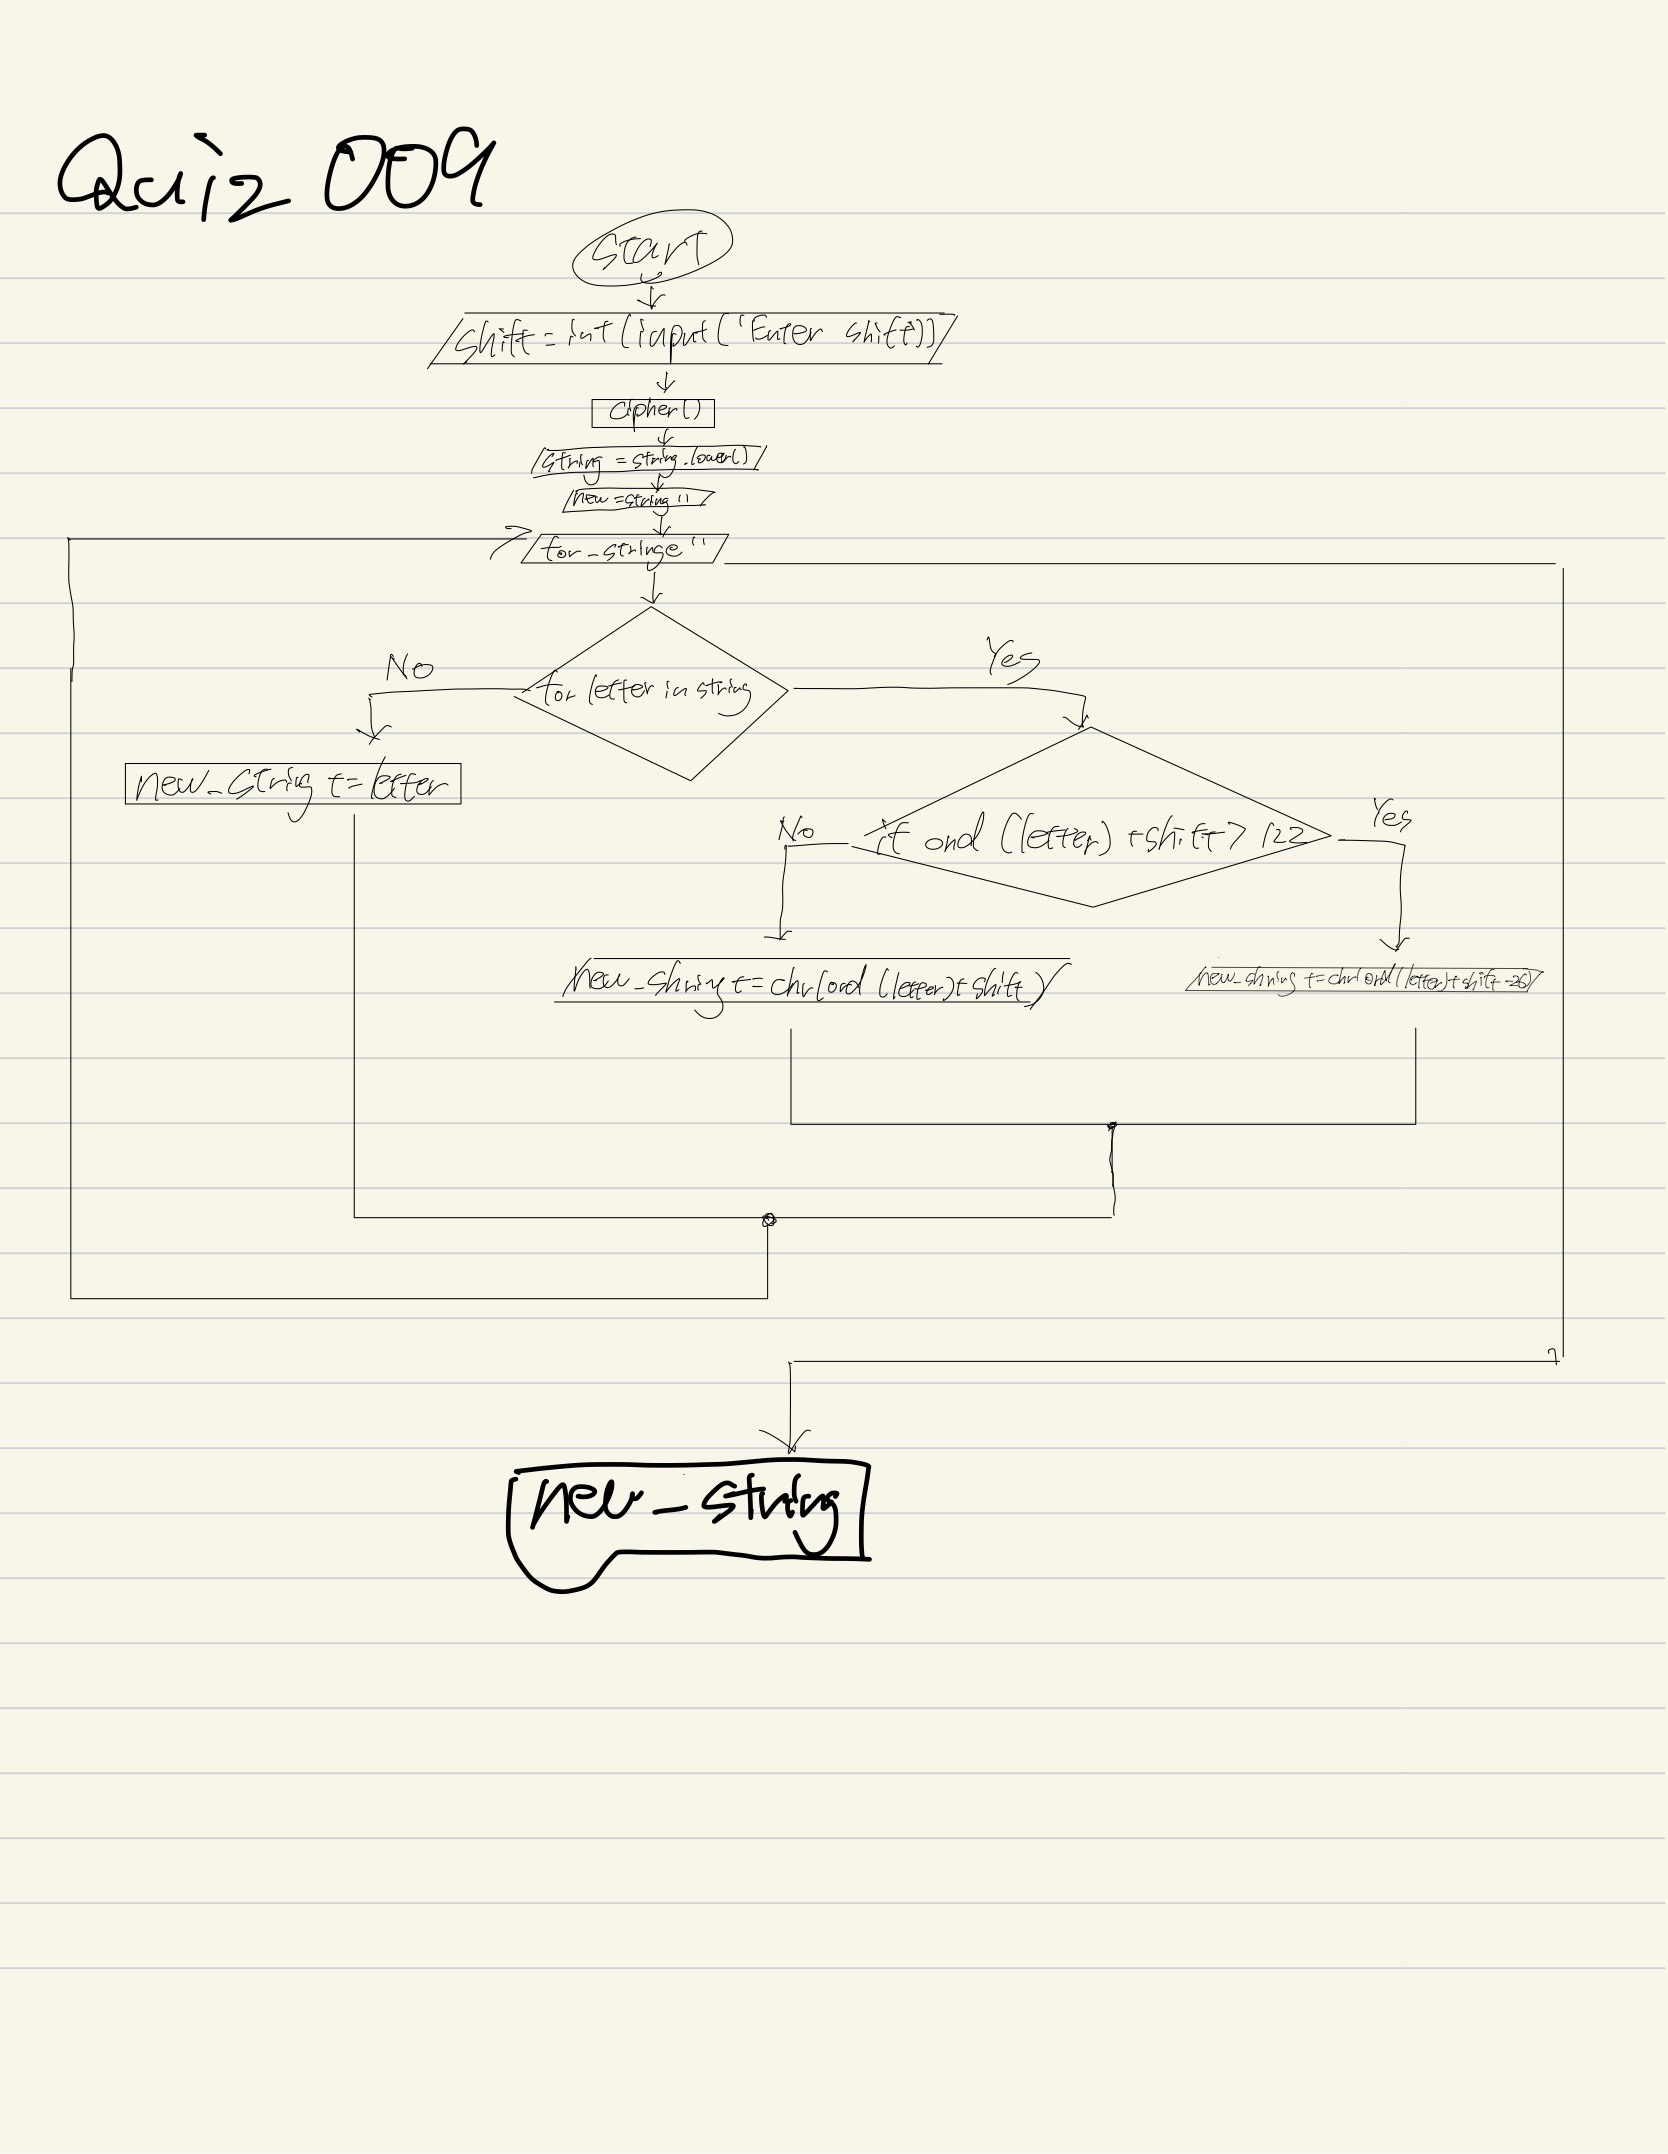 Quiz 009
start
shift = int(input('Enter shift))
Cipher()
string = string.lower()
new =string ''
for_stringe ''
No
Yes
for letter in string
new_string t= letter
No
if ord (letter) +shift > 122
Yes
new_string t= chr(ord (letter)+shift)
new_string t=chr(ord(letter)+shift-26)
new_string